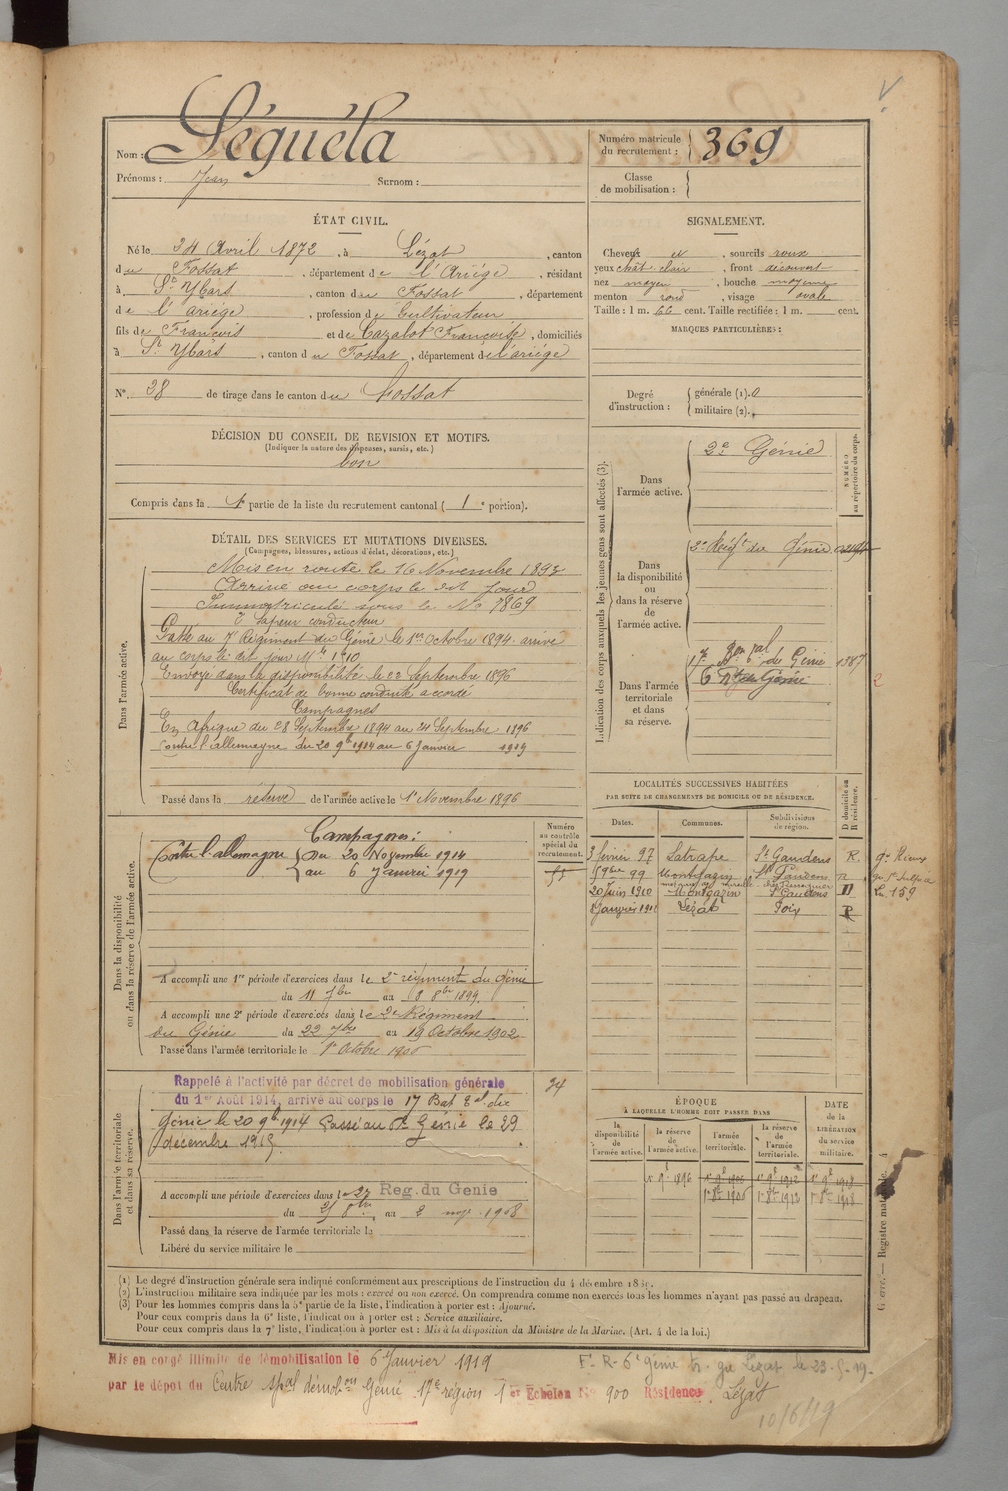 Nom : Séguéla
Prénoms : Jean Surnom :
Numéro matricule du recrutement : 369
Classe de mobilisation :
ÉTAT CIVIL.
Né le 24 Avril 1872, à Lézat, canton
du Fossat, département de l'Ariège, résidant
à St Ybars, canton du Fossat, département
de l'ariège, profession de Cultivateur
fils de François et de Cazalot Françoise, domiciliés
à St Ybars, canton du Fossat, département de l'ariège
N° 28 de tirage dans le canton du Fossat
DÉCISION DU CONSEIL DE REVISION ET MOTIFS.
(Indiquer la nature des dispenses, sursis, etc.)
bon
Compris dans la 1e partie de la liste du recrutement cantonal (1e portion).
SIGNALEMENT.
Cheveux et, sourcils roux
yeux chât. clair, front découvert
nez moyen, bouche moyenne
menton rond, visage ovale
Taille : 1 m. 66 cent. Taille rectifiée : 1 m. cent.
MARQUES PARTICULIÈRES :
Degré d'instruction : générale (1). 0
militaire (2).
DÉTAIL DES SERVICES ET MUTATIONS DIVERSES.
(Campagnes, blessures, actions d'éclat, décorations, etc.)
Dans l'armée active.
Mis en route le 16 Novembre 1893
Arrivé au corps le dit jour
Immatriculé sous le No 7869
2e Sapeur conducteur
Passé au 7e Régiment du Génie le 1er Octobre 1894 arrivé
au corps le dit jour
Envoyé dans la disponibilité le 22 Septembre 1896
Certificat de bonne conduite accordé
Campagnes
En Afrique du 28 Septembre 1894 au 21 Septembre 1896
Contre l'allemagne du 20 9b 1914 au 6 Janvier 1919
Passé dans la réserve de l'armée active le 1er Novembre 1896
Indication des corps auxquels les jeunes gens sont affectés (3).
NUMÉRO au répertoire du corps.
Dans l'armée active.
2e Génie
Dans la disponibilité ou dans la réserve de l'armée active.
2e Régt du Génie
Dans l'armée territoriale et dans sa réserve.
17e Bon du Génie 1387
6 Rt du Génie
2
LOCALITÉS SUCCESSIVES HABITÉES
PAR SUITE DE CHANGEMENTS DE DOMICILE OU DE RÉSIDENCE.
Dates. Communes. Subdivisions de région. D domicile ou R résidence.
3 février 97 Latrape St Gaudens R. gie Rieux
5 9bre 99 Montgazin St Gaudens R
20 Juin 1910 Montgazin St Gaudens D Le 159
Janvier Lézat Foix R
Dans la disponibilité ou dans la réserve de l'armée active.
Numéro au contrôle spécial du recrutement.
Campagnes :
Contre l'allemagne du 20 Novembre 1914
au 6 Janvier 1919
A accompli une 1re période d'exercices dans le 2e régiment du Génie
du 11 7bre au 8 8bre 1899.
A accompli une 2e période d'exercices dans le 2e Régiment
du Génie du 22 7bre au 19 Octobre 1902
Passé dans l'armée territoriale le 1er Octobre 1906
Dans l'armée territoriale et dans sa réserve.
Rappelé à l'activité par décret de mobilisation générale
du 1er Août 1914, arrivé au corps le 17 Bat du
Génie le 20 9b 1914 Passé au Génie le 29
décembre
24
A accompli une période d'exercices dans le 2e Reg. du Genie
du 8bre au 2 1908
Passé dans la réserve de l'armée territoriale le
Libéré du service militaire le
ÉPOQUE
A LAQUELLE L'HOMME DOIT PASSER DANS
la disponibilité de l'armée active. la réserve de l'armée active. l'armée territoriale. la réserve de l'armée territoriale.
DATE de la LIBÉRATION du service militaire.
1er 9b 1896 1er 9b 1906 1er 9b 1912 1er 9b 1918
1er 8b 1906 1er 8b 1912 1er 8b 1918
(1) Le degré d'instruction générale sera indiqué conformément aux prescriptions de l'instruction du 4 décembre 1889.
(2) L'instruction militaire sera indiquée par les mots : exercé ou non exercé. On comprendra comme non exercés tous les hommes n'ayant pas passé au drapeau.
(3) Pour les hommes compris dans la 5e partie de la liste, l'indication à porter est : Ajourné.
Pour ceux compris dans la 6e liste, l'indication à porter est : Service auxiliaire.
Pour ceux compris dans la 7e liste, l'indication à porter est : Mis à la disposition du Ministre de la Marine. (Art. 4 de la loi.)
Guerre. — Registre matricule. 4
Mis en congé illimité de démobilisation le 6 Janvier 1919
par le dépôt du Centre spal démobon Génie 17e région 1er Echelon No 900 Résidence Lézat
F. R. 6e génie
10/6/19